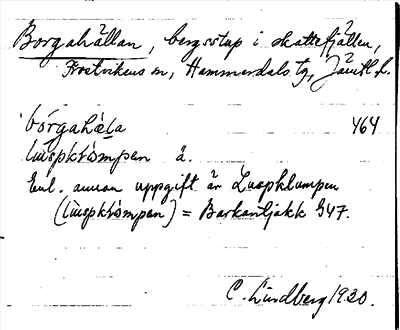 Borgahällan, bergsstup i skattefjällen,
Frostvikens sn, Hammerdals tg, Jämtl. l.
bórgahæ̀La 464
lùspkrómpen ä.
Enl. annan uppgift är Luspklumpen
(lùspkrómpen) = Barkantjåkk 947.
C. Lindberg 1930.